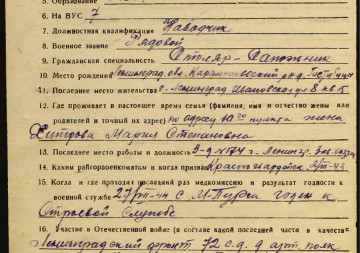 5. Образование
6. На ВУС 7
7. Должностная квалификация Наводчик
8. Военное звание Рядовой
9. Гражданская специальность Столяр-Сапожник
10. Место рождения Ленинград. обл.
11. Последнее место жительства г. Ленинград 8 кв 6
12. Где проживает в настоящее время семья (фамилия, имя и отчество жены или
родителей и точный их адрес) по адресу 10го пункта жена
Хитрова Мария Степановна
13. Последнее место работы и должность з-д №174 г. Ленингр.
14. Каким райгорвоенкоматом и когда призван Красногвардейск.
15. Когда и где проходил последний раз медкомиссию и результат годности к
военной службе 27/VIII-44 с годен к
Строевой Службе
16. Участие в Отечественной войне (в составе какой последней части в качестве
Ленинградский фронт 72 с.д. 9 арт. полк